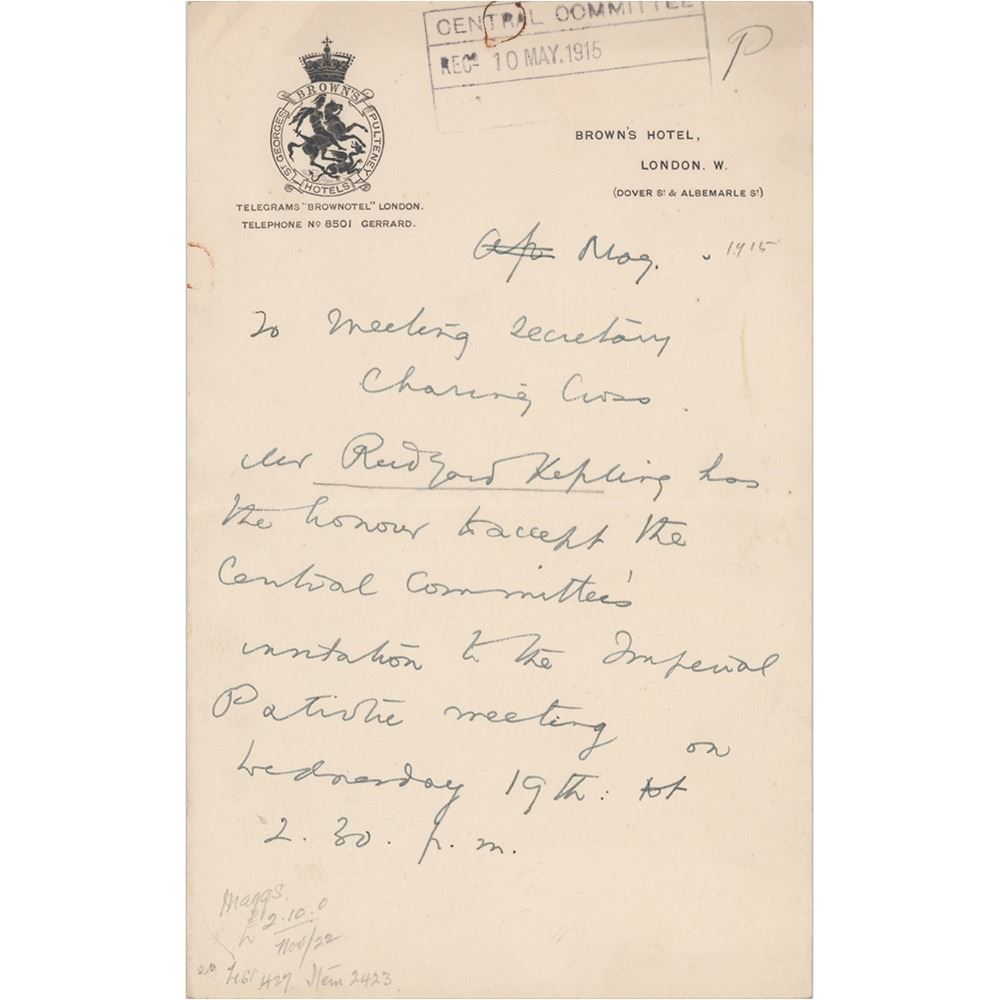 CENTRAL COMMITTEE
REC^D 10 MAY.1915
P
BROWN'S
ST GEORGES
PULTENEY
HOTELS
TELEGRAMS "BROWNOTEL" LONDON.
TELEPHONE Nº 8501 GERRARD.
BROWN'S HOTEL,
LONDON. W.
(DOVER ST & ALBEMARLE ST)
Ap May. 1915
To Meeting Secretary
Charing Cross.
Mr Rudyard Kipling has
the honour to accept the
Central Committee's
invitation to the Imperial
Patriotic meeting on
Wednesday 19th: at
2.30. p.m.
Maggs.
£2.10.0
Nov/22
List 427 Item 2423